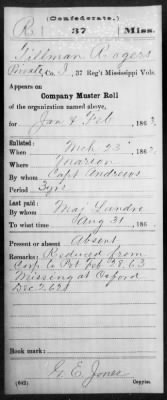 (Confederate.)
R 37 Miss.
Tillman Rogers
Private, Co. I, 37 Reg't Mississippi Vols.
Appears on
Company Muster Roll
of the organization named above,
for Jan & Feb, 1863.
Enlisted:
When Mch 23, 186
Where Marion
By whom Capt Andrews
Period 3 yrs
Last paid:
By whom Maj Landre
To what time Aug 31, 186
Present or absent Absent
Remarks: Reduced from
Corp to Pvt Feb 28.63
Missing at Oxford
Dec 2.62
Book mark:
G. E. Jones
(642) Copyist.